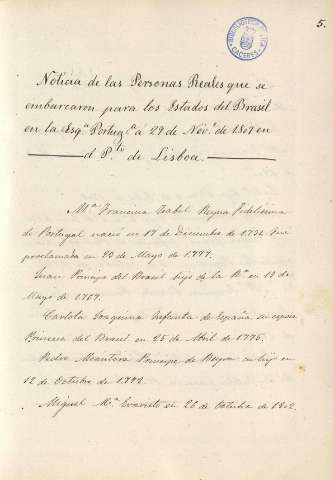 5.
BIBLIOTECA PUBLICA
CACERES
Noticia de las Personas Reales que se
embarcaron para los Estados del Brasil
en la Esqª Portugª á 29 de Novᵉ de 1807 en
el Pᵗᵒ de Lisboa.
Mª Francisca Isabel Reyna Fidelisima
de Portugal nació en 17 de Decembre de 1734 fue
proclamada en 20 de Mayo de 1777.
Juan Principe del Brasil hijo de la Rª en 13 de
Mayo de 1767.
Carlota Joaquina Infanta de España su esposa
Princesa del Brasil en 25 de Abril de 1775.
Pedro Alcantara Principe de Beyra su hijo en
12 de Octubre de 1798.
Miguel Mª Evaristo en 26 de Octubre de 1802.